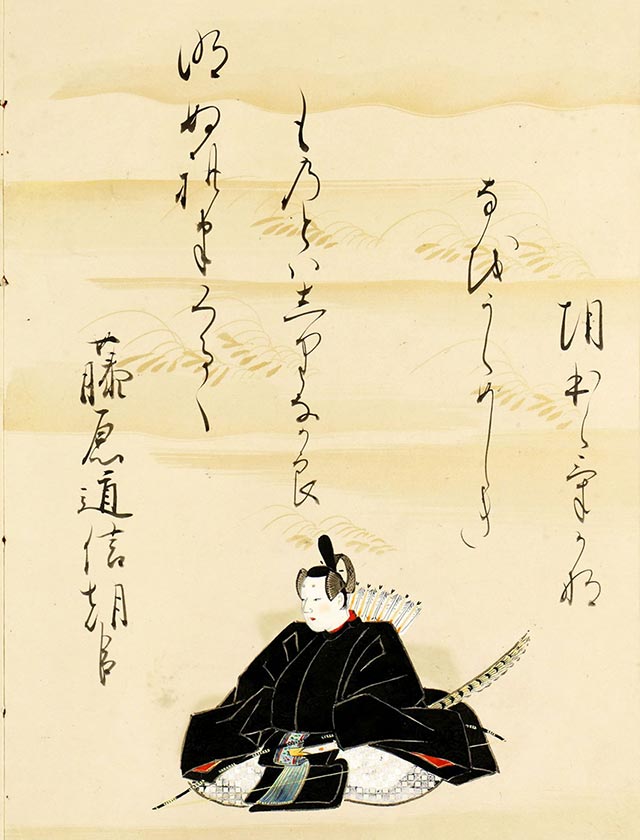 藤原道信朝臣
明ぬれはくるゝ
ものとはしりなから
なをうらめしき
朝ほらけかな